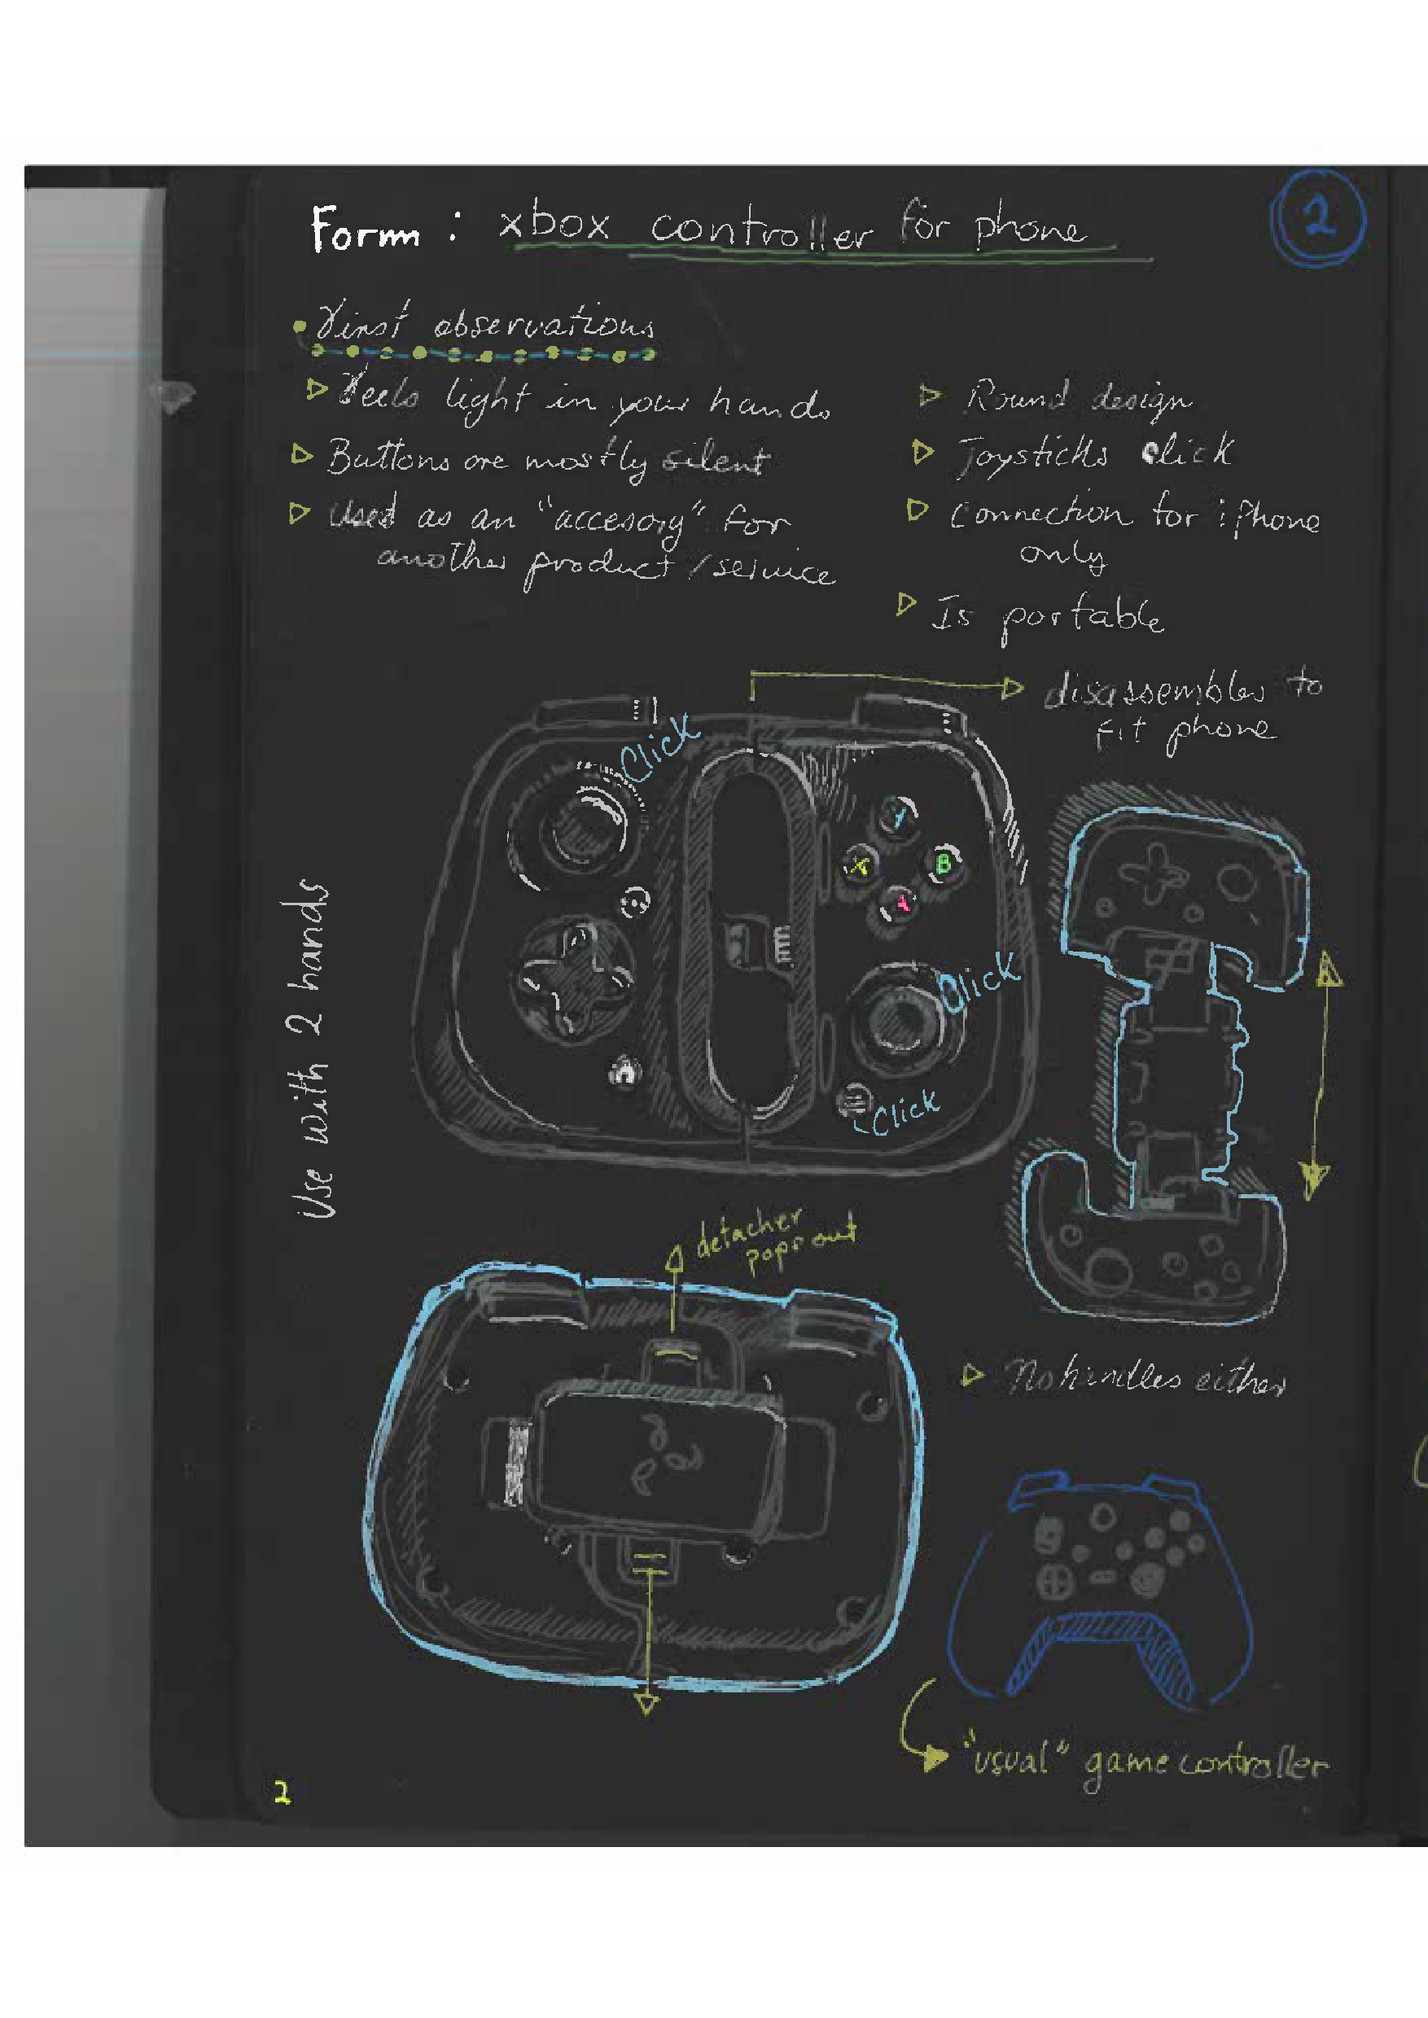 Form : xbox controller for phone
2
First observations
Feels light in your hands
Buttons are mostly silent
Used as an "accesory" for
another product / service
Round design
Joysticks click
Connection for iphone
only
Is portable
disassembles to
fit phone
Click
Y
X
B
A
Click
Click
Use with 2 hands
detacher
pops out
No handles either
"usual" game controller
2